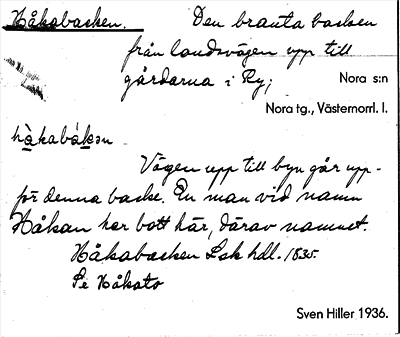 Håkabacken. Den branta backen
från landsvägen upp till
gårdarna i Ry;
Nora s:n
Nora tg., Västernorrl. l.
hàkabákən
Vägen upp till byn går upp-
för denna backe. En man vid namn
Håkan har bott här, därav namnet.
Håkabacken Lsk hdl. 1835.
Se Håkato
Sven Hiller 1936.